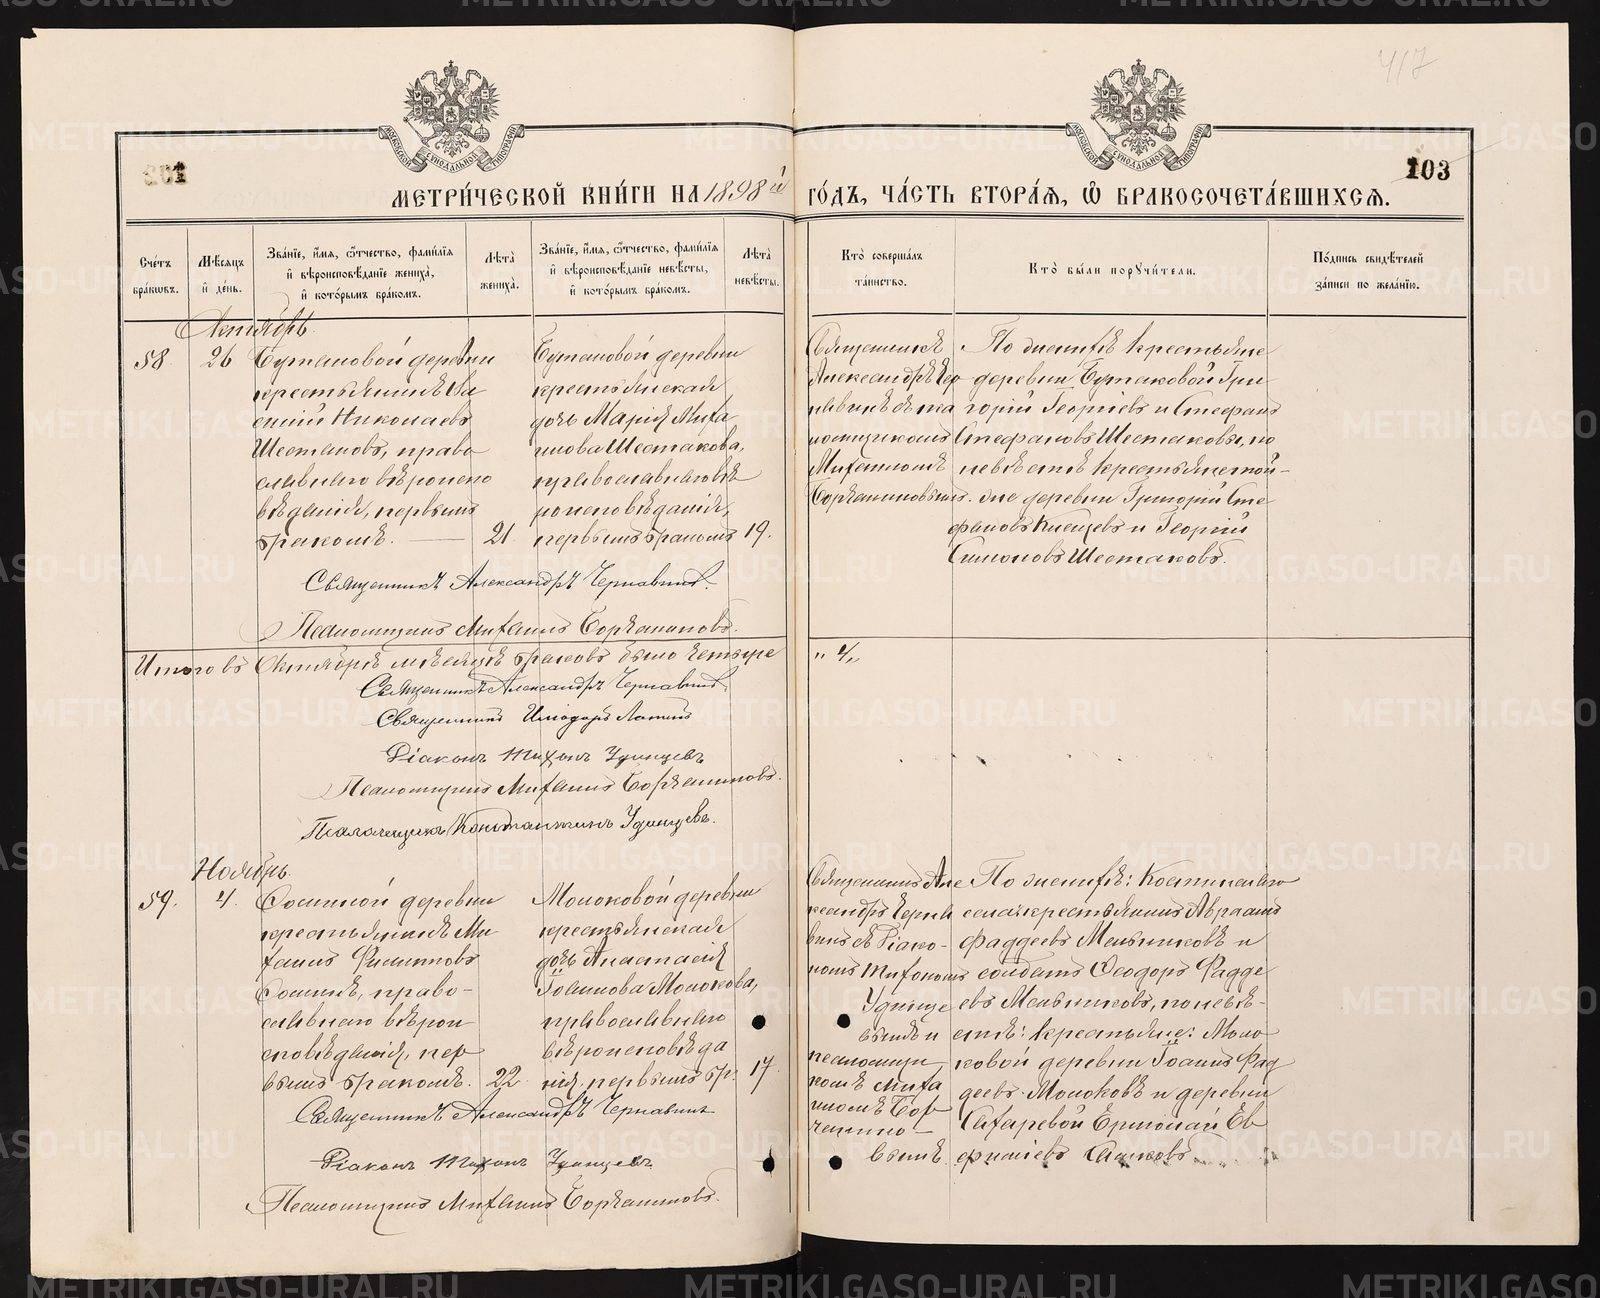 417
103
МЕТРИ́ЧЕСКОЙ КНИ́ГИ НА 1898й ГО́ДЪ, ЧА́СТЬ ВТОРА́Я, Ѡ БРАКОСОЧЕТА́ВШИХСЯ.
Сче́тъ бра́кωвъ.
Мѣ́сяцъ и҆ де́нь.
Зва́нїе, и҆́мя, ѻ҆́тчество, фами́лїя и҆ вѣроисповѣ́данїе жениха̀, и҆ кото́рымъ бра́комъ.
Лѣ́та жениха̀.
Зва́нїе, и҆́мя, ѻ҆́тчество, фами́лїя и҆ вѣроисповѣ́данїе невѣ́сты, и҆ кото́рымъ бра́комъ.
Лѣ́та невѣ́сты.
Кто̀ соверша́лъ та́инство.
Кто̀ бы́ли порꙋчи́тели.
По́дпись свидѣ́телей за́писи по жела́нїю.
Октябрь.
58.
26
Бутаковой деревни
крестьянинъ Ва
силій Николаевъ
Шестаковъ, право
славнаго вѣроиспо
вѣданія, первымъ
бракомъ.
21
Бутаковой деревни
крестьянская
дочь Марія Миха
илова Шестакова,
православнаго вѣ
роисповѣданія,
первымъ бракомъ
19.
Священникъ
Александръ Чер
навинъ съ пса
ломщикомъ
Михаиломъ
Борчаниновымъ.
По женихѣ крестьяне
деревни Бутаковой Гри
горій Георгіевъ и Стефанъ
Стефановъ Шестаковы, по
невѣстѣ крестьяне той-
же деревни Григорій Сте
фановъ и Георгій
Симоновъ Шестаковъ.
Священникъ Александръ Чернавинъ.
Псаломщикъ Михаилъ Борчаниновъ.
Итого въ Октябрѣ мѣсяцѣ браковъ было четыре
„ 4 „
Священникъ Александръ Чернавинъ.
Священникъ Иліодоръ
Діаконъ Тихонъ Удинцевъ
Псаломщикъ Михаилъ Борчаниновъ.
Псаломщикъ Константинъ Удинцевъ.
Ноябрь.
59.
4.
Сосниной деревни
крестьянинъ Ми
хаилъ Филипповъ
Соснинъ, право-
славнаго вѣроис
повѣданія, пер
вымъ бракомъ.
22.
Молоковой деревни
крестьянская
дочь Анастасія
Іоаннова Молокова,
православнаго
вѣроисповѣда
нія, первымъ бр.
17
Священникъ Але
ксандръ Черна
винъ съ Діако-
номъ Тихономъ
Удинце
вымъ и
псаломщи
комъ Миха
иломъ Бор
чанино-
вымъ.
По женихѣ:
села крестьянинъ Авраамъ
Фаддеевъ Мельниковъ и
солдатъ Ѳеодоръ Фадде
евъ Мельниковъ, по невѣ-
стѣ: крестьяне: Моло
ковой деревни Іоаннъ Фад
деевъ Молоковъ и деревни
Сахаревой Ермолай Ев
фиміевъ
Священникъ Александръ Чернавинъ
Діаконъ Тихонъ Удинцевъ
Псаломщикъ Михаилъ Борчаниновъ.
METRIKI.GASO-URAL.RU